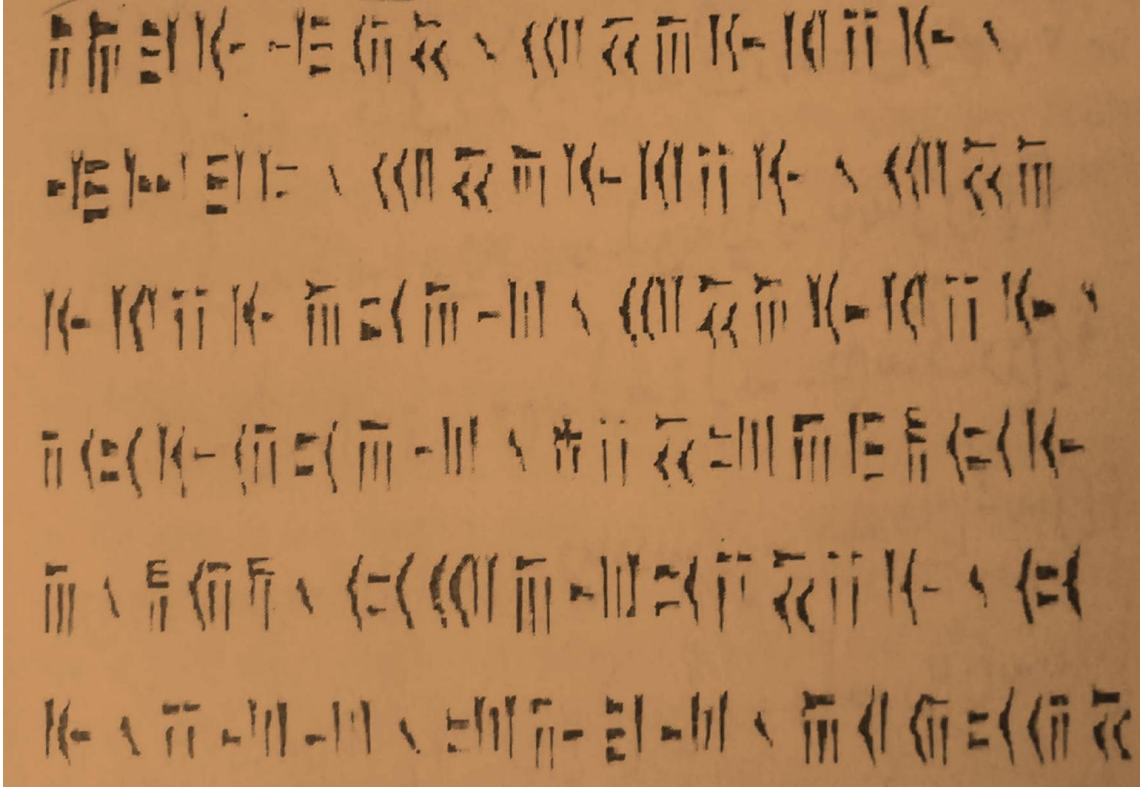 𐎭𐎠𐎼𐎹𐎺𐎢𐏁 𐏐 𐎧𐏁𐎠𐎹𐎰𐎡𐎹 𐏐
𐎺𐏀𐎼𐎣 𐏐 𐎧𐏁𐎠𐎹𐎰𐎡𐎹 𐏐 𐎧𐏁𐎠
𐎹𐎰𐎡𐎹𐎠𐎴𐎠𐎶 𐏐 𐎧𐏁𐎠𐎹𐎰𐎡𐎹 𐏐
𐎭𐏃𐎹𐎢𐎴𐎠𐎶 𐏐 𐎻𐎡𐏁𐎫𐎠𐎿𐎱𐏃𐎹
𐎠 𐏐 𐎱𐎢𐏂 𐏐 𐏃𐎧𐎠𐎶𐎴𐎡𐏁𐎡𐎹 𐏐 𐏃
𐎹 𐏐 𐎡𐎶𐎶 𐏐 𐎫𐎨𐎼𐎶 𐏐 𐎠𐎤𐎢𐎴𐎢𐏁